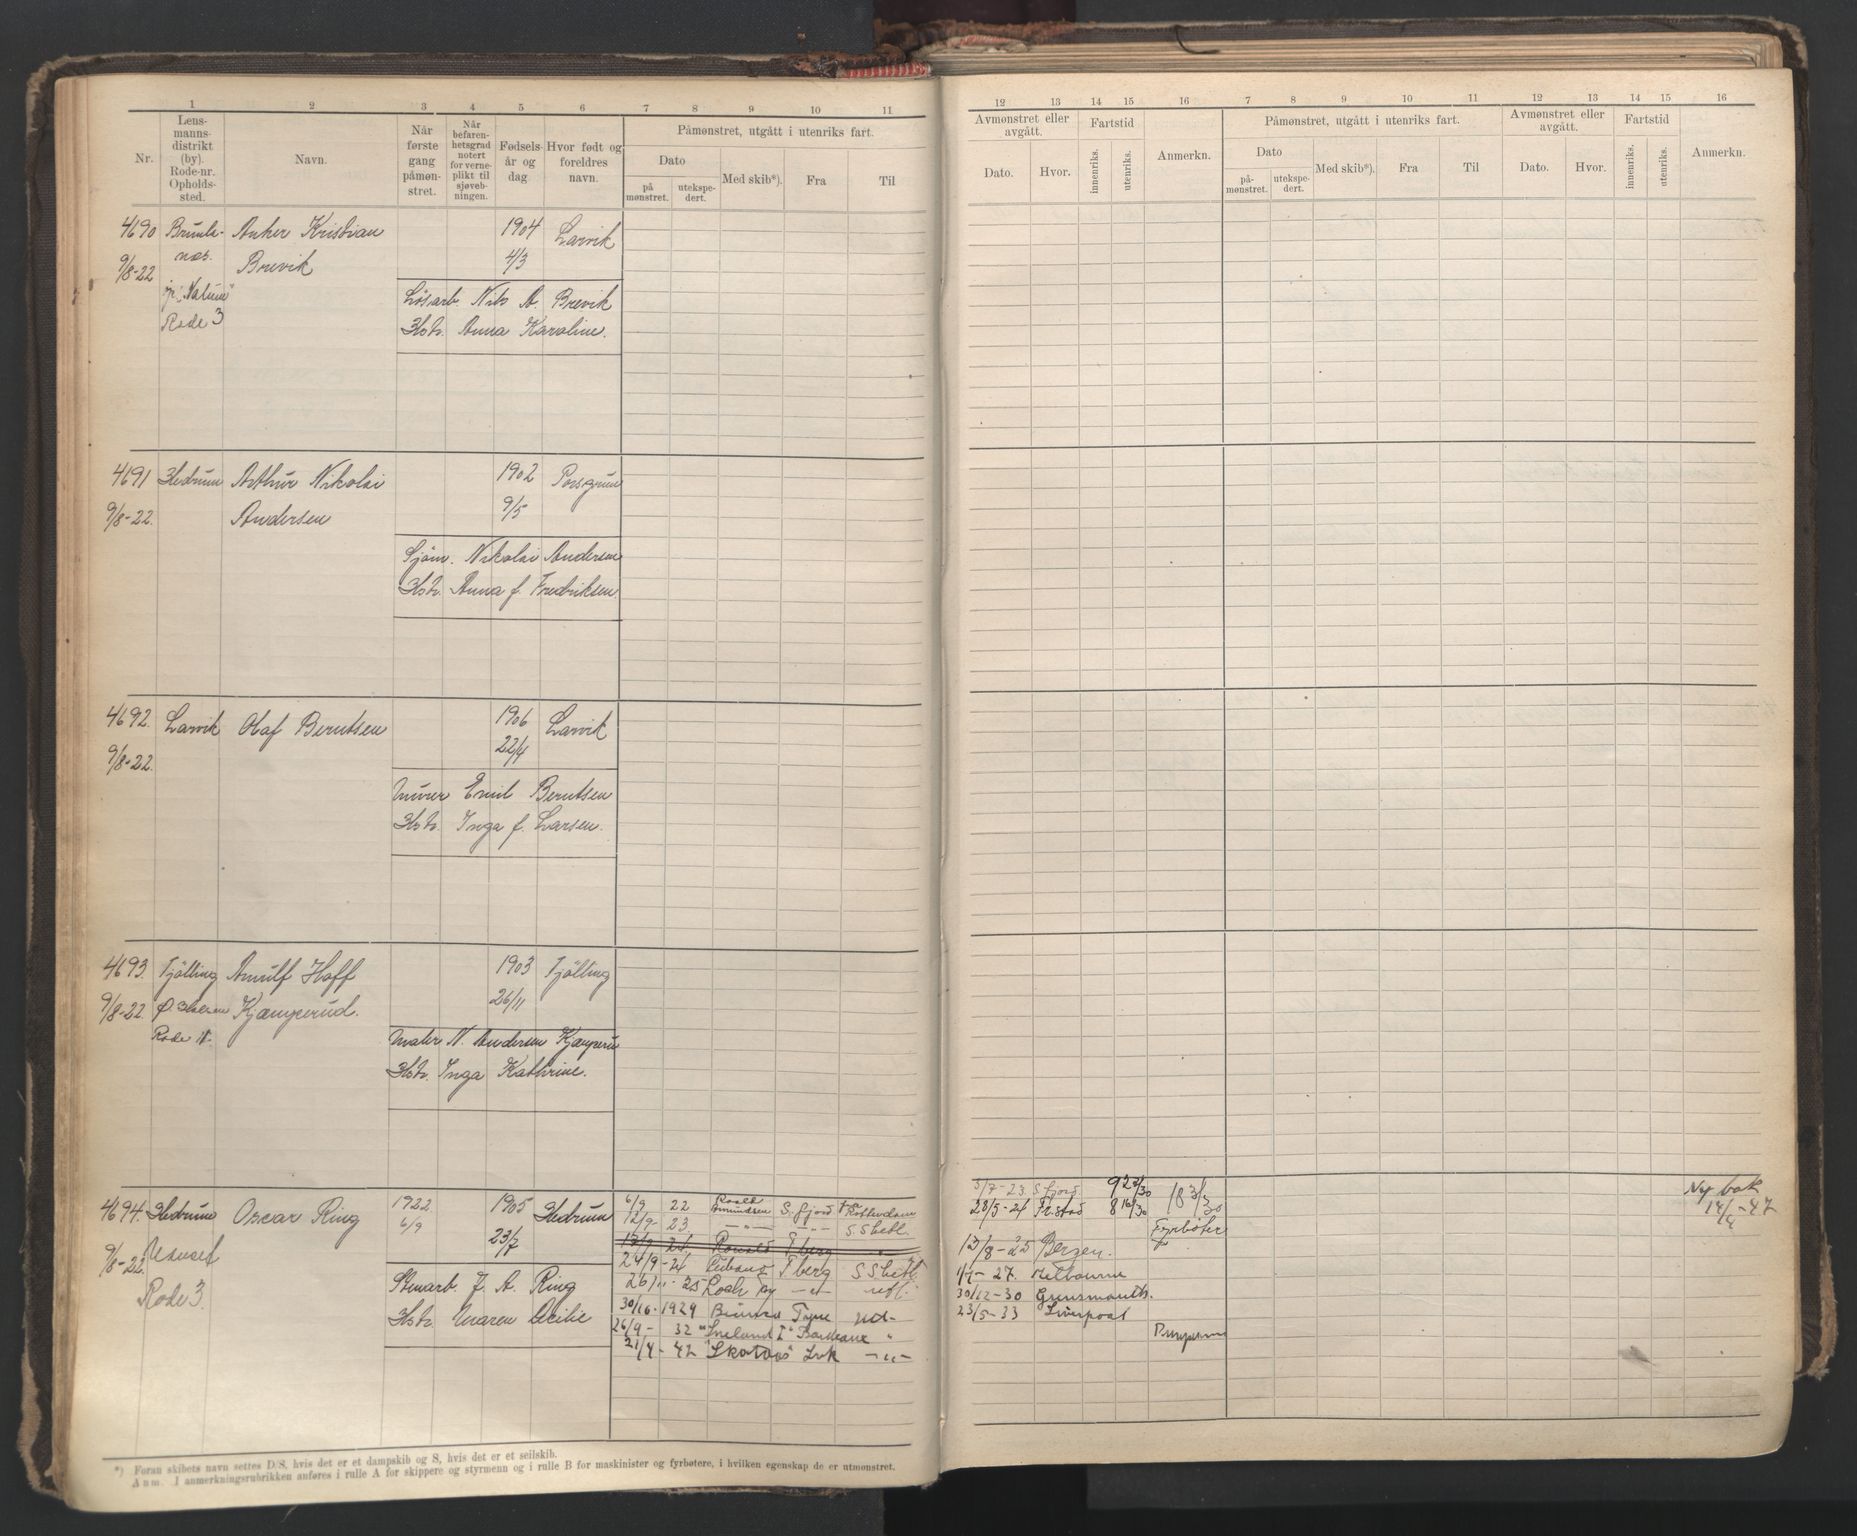 1 2 3 4 5 6 7 8 9 10 11
Nr. Lensmannsdistrikt (by). Rode-nr. Opholdssted. Navn. Når første gang påmønstret. Når befarenhetsgrad notert for verneplikt til sjøvebningen. Fødselsår og dag Hvor født og foreldres navn. Påmønstret, utgått i utenriks fart.
Dato Med skib*). Fra Til
påmønstret. utekspedert.
12 13 14 15 16 7 8 9 10 11 12 13 14 15 16
Avmønstret eller avgått. Fartstid Anmerkn. Påmønstret, utgått i utenriks fart. Avmønstret eller avgått. Fartstid Anmerkn.
Dato. Hvor. innenriks. utenriks. Dato Med skib*). Fra Til Dato. Hvor. innenriks. utenriks.
påmønstret. utekspedert.
4690 Brunla- Anker Kristian 1904 Larvik
9/8-22 nes. Brevik 4/3
Løsarb. Nils A. Brevik
Rode 3 Hstr. Anna Karoline.
4691 Hedrum Arthur Nikolai 1902 Porsgrun
9/8-22. Andersen 9/5
Sjøm. Nikolai Andersen
Hstr. Anna f. Fredriksen
4692. Larvik Olaf Berntsen 1906 Larvik
9/8-22. 22/4
Murer Emil Berntsen
Hstr. Inga f. Larsen.
4693. Tjölling Arnulf Hoff 1903 Tjölling
9/8-22. Kjæmperud. 26/11
Maler N. Andersen Kjæmperu
Hstr. Inga Kathrine.
4694. Hedrum Oscar Ring 1922 1905 Hedrum
9/8-22. 6/9 23/7
Rode 3. Stenarb. F. A. Ring
Hstr. Maren Cecilie
6/9 22 Roald Amundsen S. fjord Rotterdam
12/9- 23. -"- -"- S.S.betl.
Ronald T berg "
24/9-24 Cubano T berg S.S.betl.
26/11-25 Loch Ry -"-
30/10-1929 Tyne ud-
26/9- 32 "Ireland I" "
21/4-42 "Skotaas" Lvk -"-
3/7-23. S fjord. 9 22/30 18 3/30
28/5-24 Fr.stad 8 16/30
Fyrbøter
13/8-25 Bergen.
1/7-27. Melbourne
30/12-30
23/5-33 Liverpool
Ny bok
14/4-47
*) Foran skibets navn settes D/S, hvis det er et dampskib og S, hvis det er et seilskib.
Anm. I anmerkningsrubrikken anføres i rulle A for skippere og styrmenn og i rulle B for maskinister og fyrbøtere, i hvilken egenskap de er utmønstret.